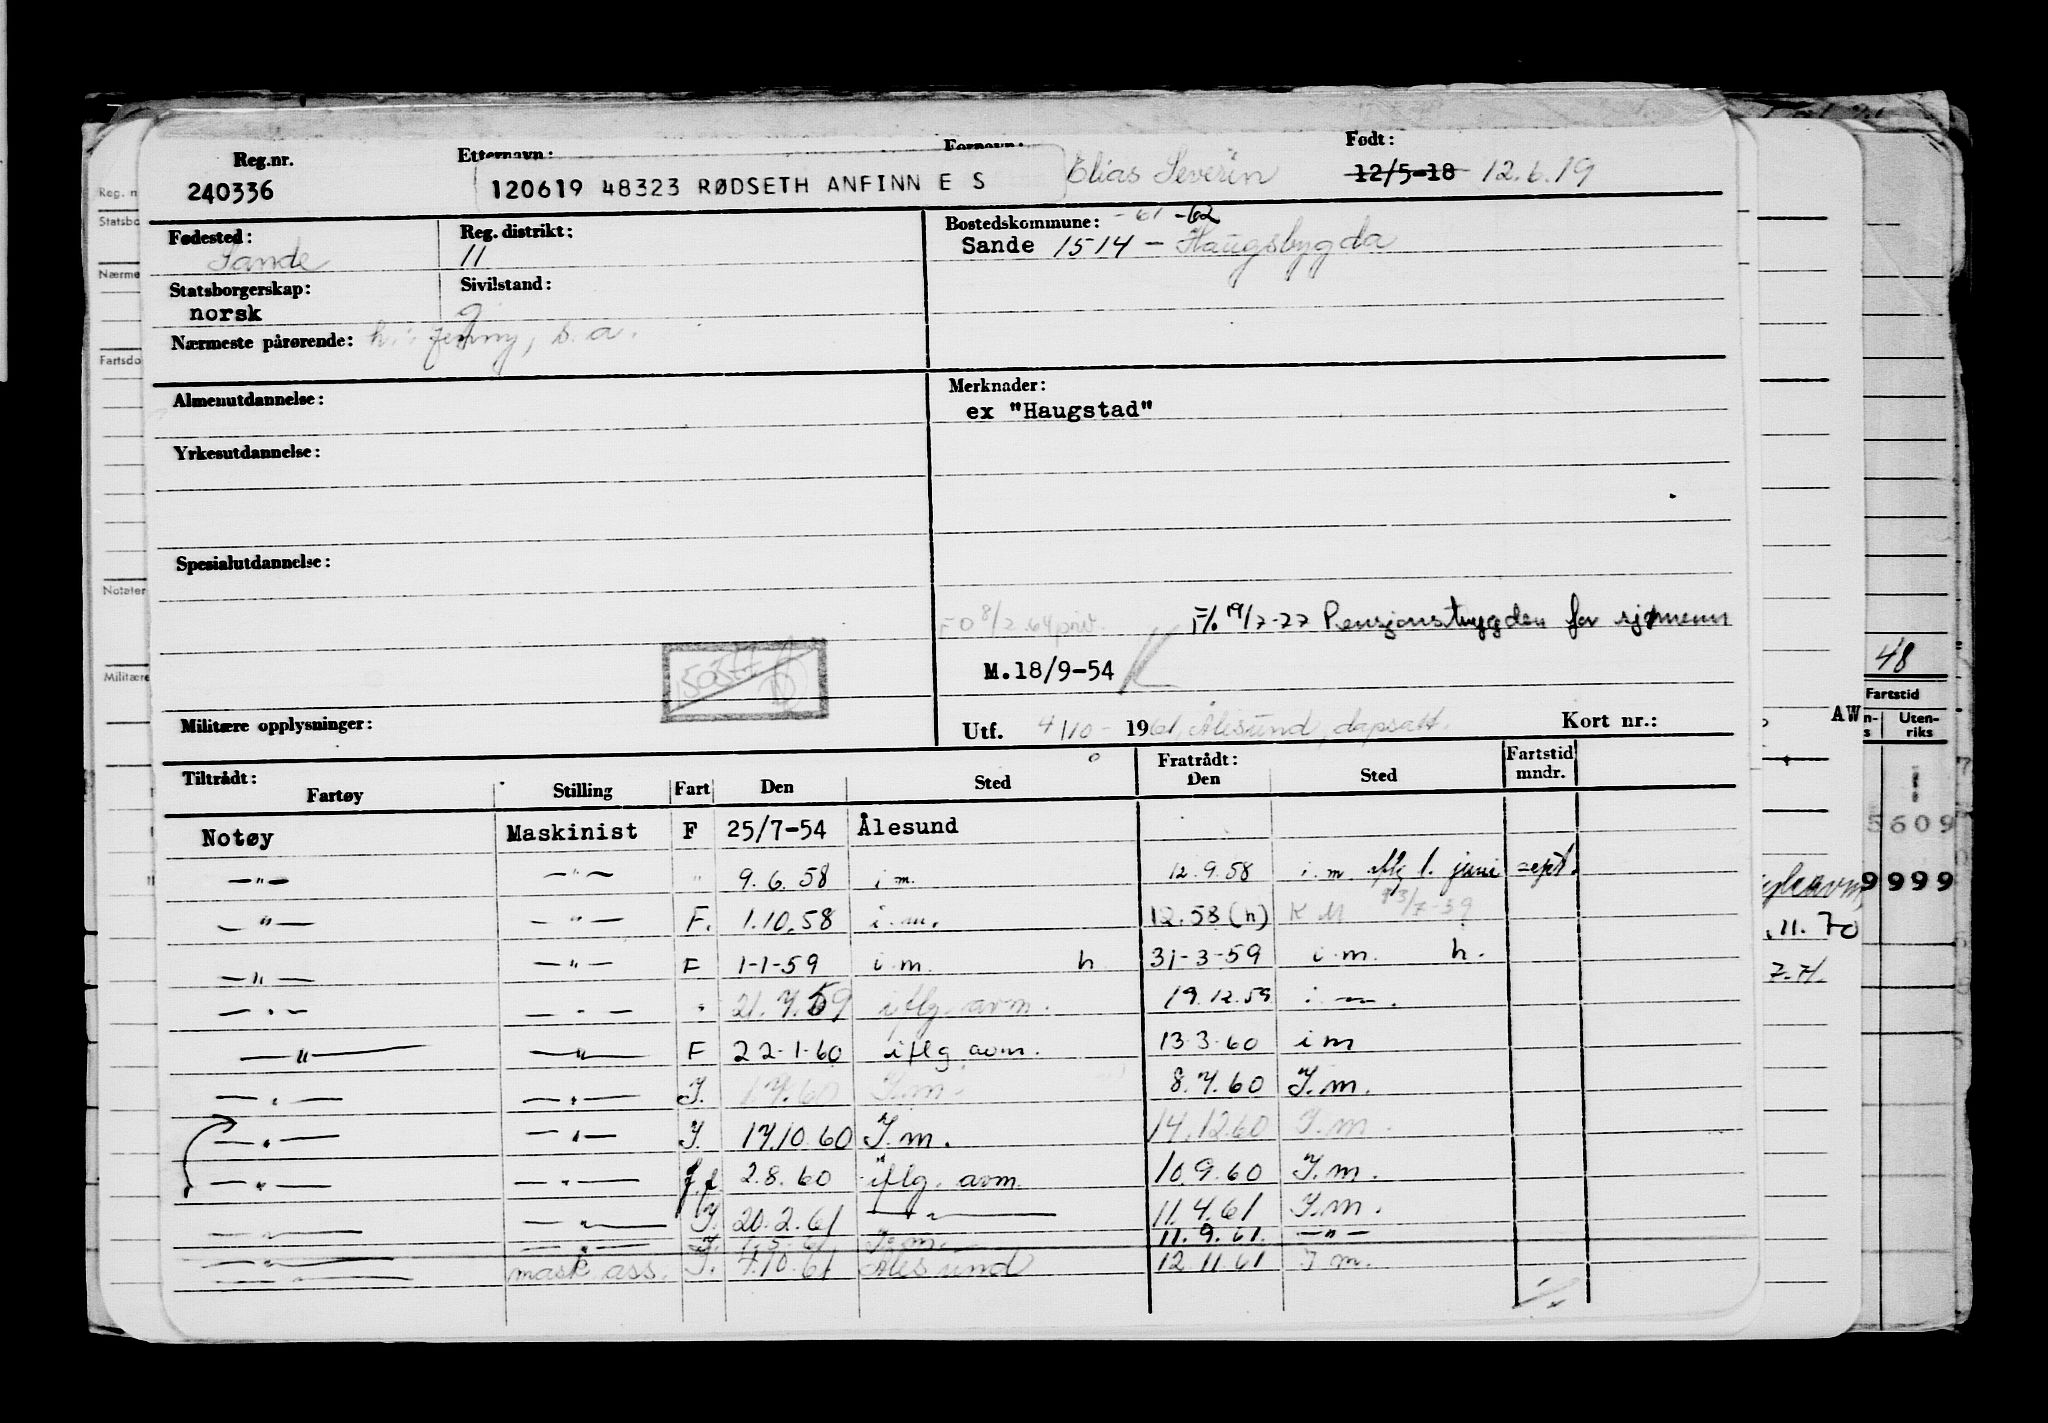 Reg.nr. Etternavn: Fornavn: Født:
240336 120619 48323 RØDSETH ANFINN E S Elias Severin 12/5-18 12.6.19
Fødested: Reg. distrikt: Bostedskommune: -61-62
Sande 11 Sande 1514 - Haugsbygda
Statsborgerskap: Sivilstand:
norsk g
Nærmeste pårørende: h.: Jenny, s.a.
Almenutdannelse: Merknader:
ex "Haugstad"
Yrkesutdannelse:
Spesialutdannelse:
FO 8/2.64 priv. F/. 19/7-77 Pensjonstrygden for sjømenn
M.18/9-54
Militære opplysninger: Utf. 4/10 - 1961, Ålesund, Kort nr.:
Tiltrådt: Fratrådt: Fartstid
Fartøy Stilling Fart Den Sted Den Sted mndr.
Notøy Maskinist F 25/7-54 Ålesund
—"— —"— " 9.6.58 i m. 12.9.58 i.m iflg l. juni sept.
—"— —"— F. 1.10.58 i.m. 12.58 (h) K M 3/7-59
—"— —"— F 1-1-59 i.m. h 31-3-59 i.m. h.
—"— —"— " 21.7.59 iflg. avm. 19.12.59 i.m.
—"— —"— F 22-1-60 iflg avm. 13.3.60 i m
—"— —"— I. 1.7.60 I.m. 8.7.60 I.m.
—"— —"— I. 17.10.60 I.m. 14.12.60 I.m.
—"— —"— f.f 2.8.60 iflg. avm. 10.9.60 I.m.
—"— —"— I. 20.2.61 —"— 11.4.61 I.m.
—"— —"— I. 1.5.61 I.m. 11.9.61. —"—
—"— mask ass. I. 7.10.61 Ålesund 12.11.61 I m.
Reg. n
Statsbo
Nærme
Fartsdo
Notater
Militære
48
Fartstid
AW
n- Uten-
s riks
5609
9999
.11.70